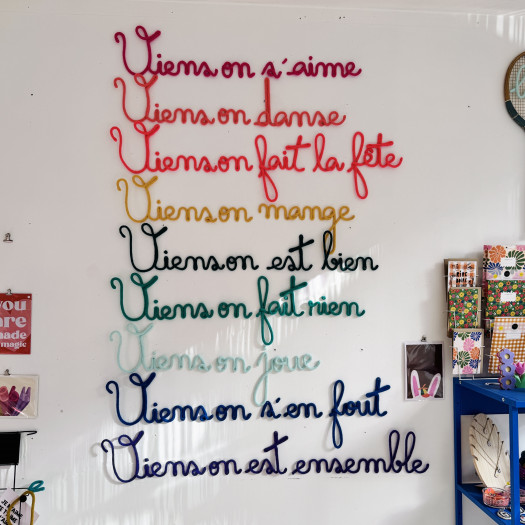 Viens on s'aime
Viens on danse
Viens on fait la fête
Viens on mange
Viens on est bien
Viens on fait rien
Viens on joue
Viens on s'en fout
Viens on est ensemble
you
are
made
magic